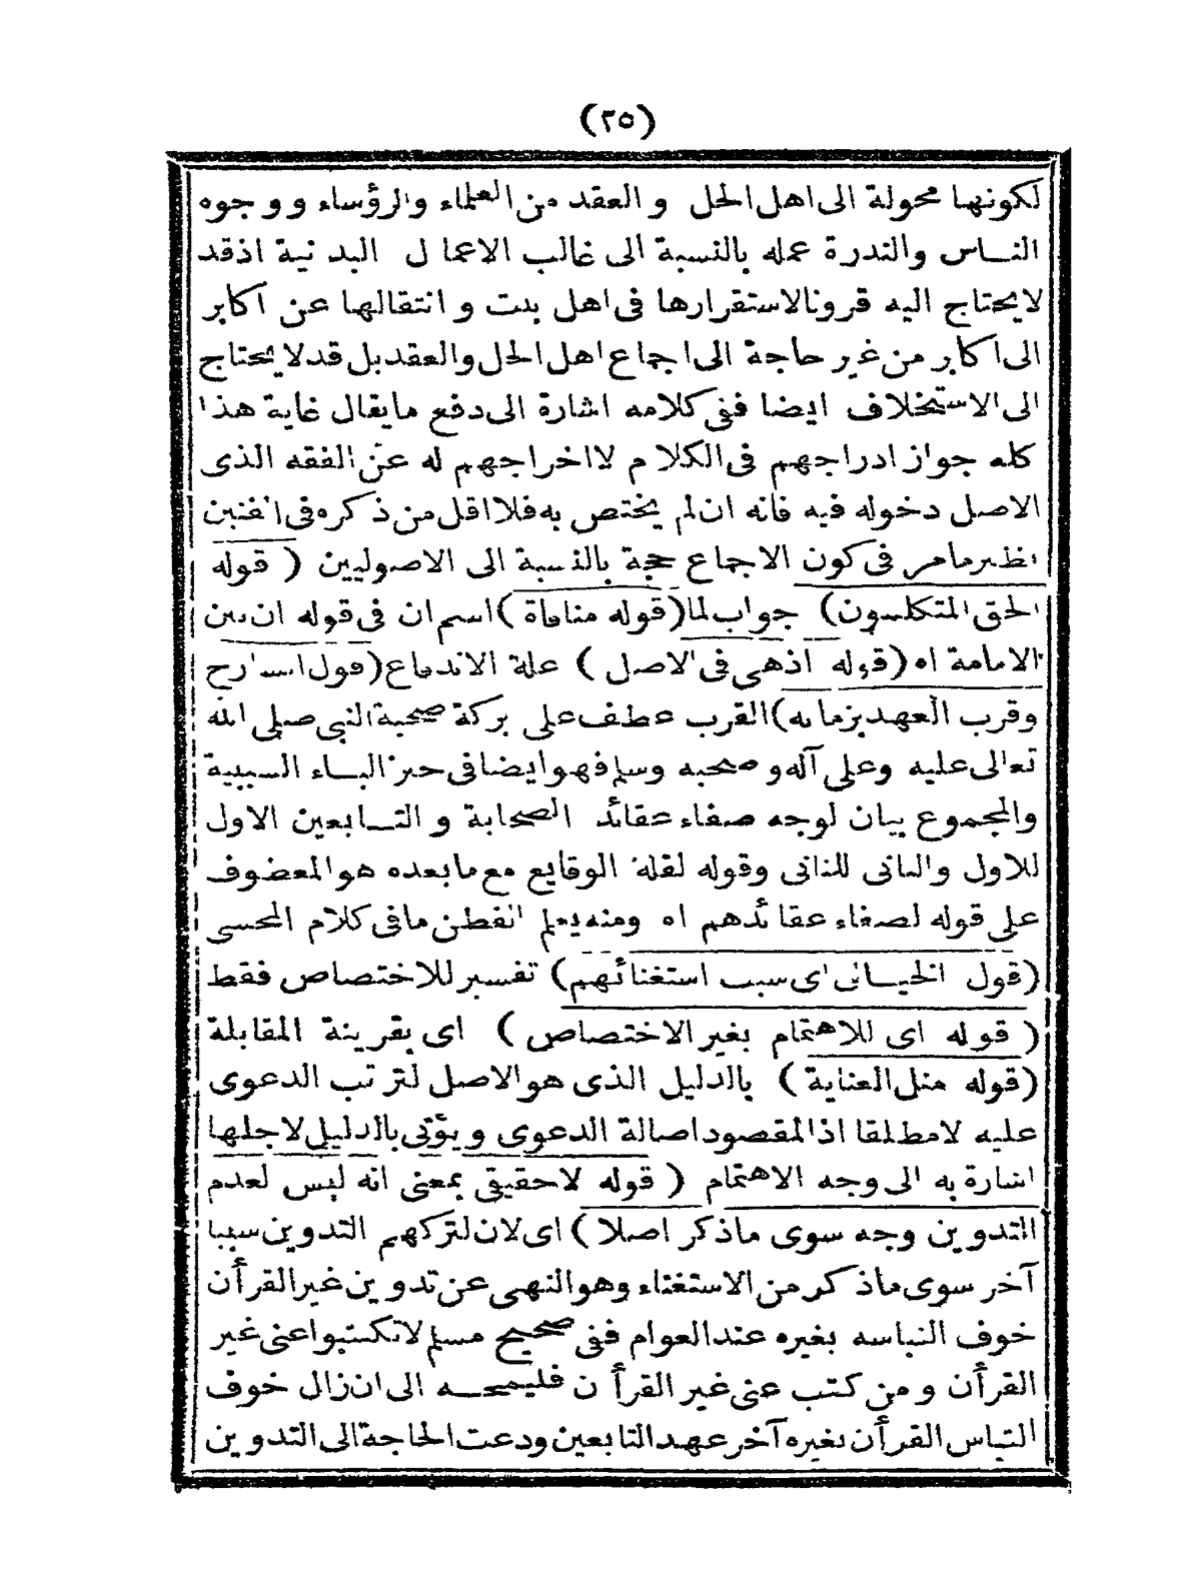 (٢٥)
لكونها محولة الى اهل الحل و العقد من العلماء والرؤساء و وجوه
الناس والندرة عمله بالنسبة الى غالب الاعمال البدنية اذقد
لايحتاج اليه قرونا لاستقرارها فى اهل بيت و انتقالها عن اكابر
الى اكابر من غير حاجة الى اجماع اهل الحل والعقد بل قدلا يحتاج
الى الاستخلاف ايضا ففى كلامه اشارة الى دفع مايقال غاية هذا
كله جواز ادراجهم فى الكلام لااخراجهم له عن الفقه الذى
الاصل دخوله فيه فانه ان لم يختص به فلا اقل من ذكره فى الفنين
نظير مامر فى كون الاجماع حجة بالنسبة الى الاصوليين (قوله
الحق المتكلمون) جواب لما (قوله منافاة) اسم ان فى قوله ان بين
الامامة اه (قوله اذهى فى الاصل) علة الاندفاع (قول الشارح
وقرب العهد بزمانه) القرب عطف على بركة صحبة النبى صلى الله
تعالى عليه وعلى آله و صحبه وسلم فهو ايضا فى حيز الباء السببية
والمجموع بيان لوجه صفاء عقائد الصحابة و التابعين الاول
للاول والثانى للثانى وقوله لقلة الوقايع مع مابعده هو المعطوف
على قوله لصفاء عقائدهم اه ومنه يعلم الفطن مافى كلام المحشى
(قول الخيالى اى سبب استغنائهم) تفسير للاختصاص فقط
(قوله اى للاهتمام بغير الاختصاص) اى بقرينة المقابلة
(قوله مثل العناية) بالدليل الذى هو الاصل لترتب الدعوى
عليه لامطلقا اذ المقصود اصالة الدعوى و يؤتى بالدليل لاجلها
اشارة به الى وجه الاهتمام (قوله لاحقيقى بمعنى انه ليس لعدم
التدوين وجه سوى ماذكر اصلا) اى لان لتركهم التدوين سببا
آخر سوى ماذكر من الاستغناء وهو النهى عن تدوين غير القرأن
خوف التباسه بغيره عند العوام ففى صحيح مسلم لاتكتبوا عنى غير
القرأن و من كتب عنى غير القرأن فليمحه الى ان زال خوف
التباس القرأن بغيره آخر عهد التابعين ودعت الحاجة الى التدوين